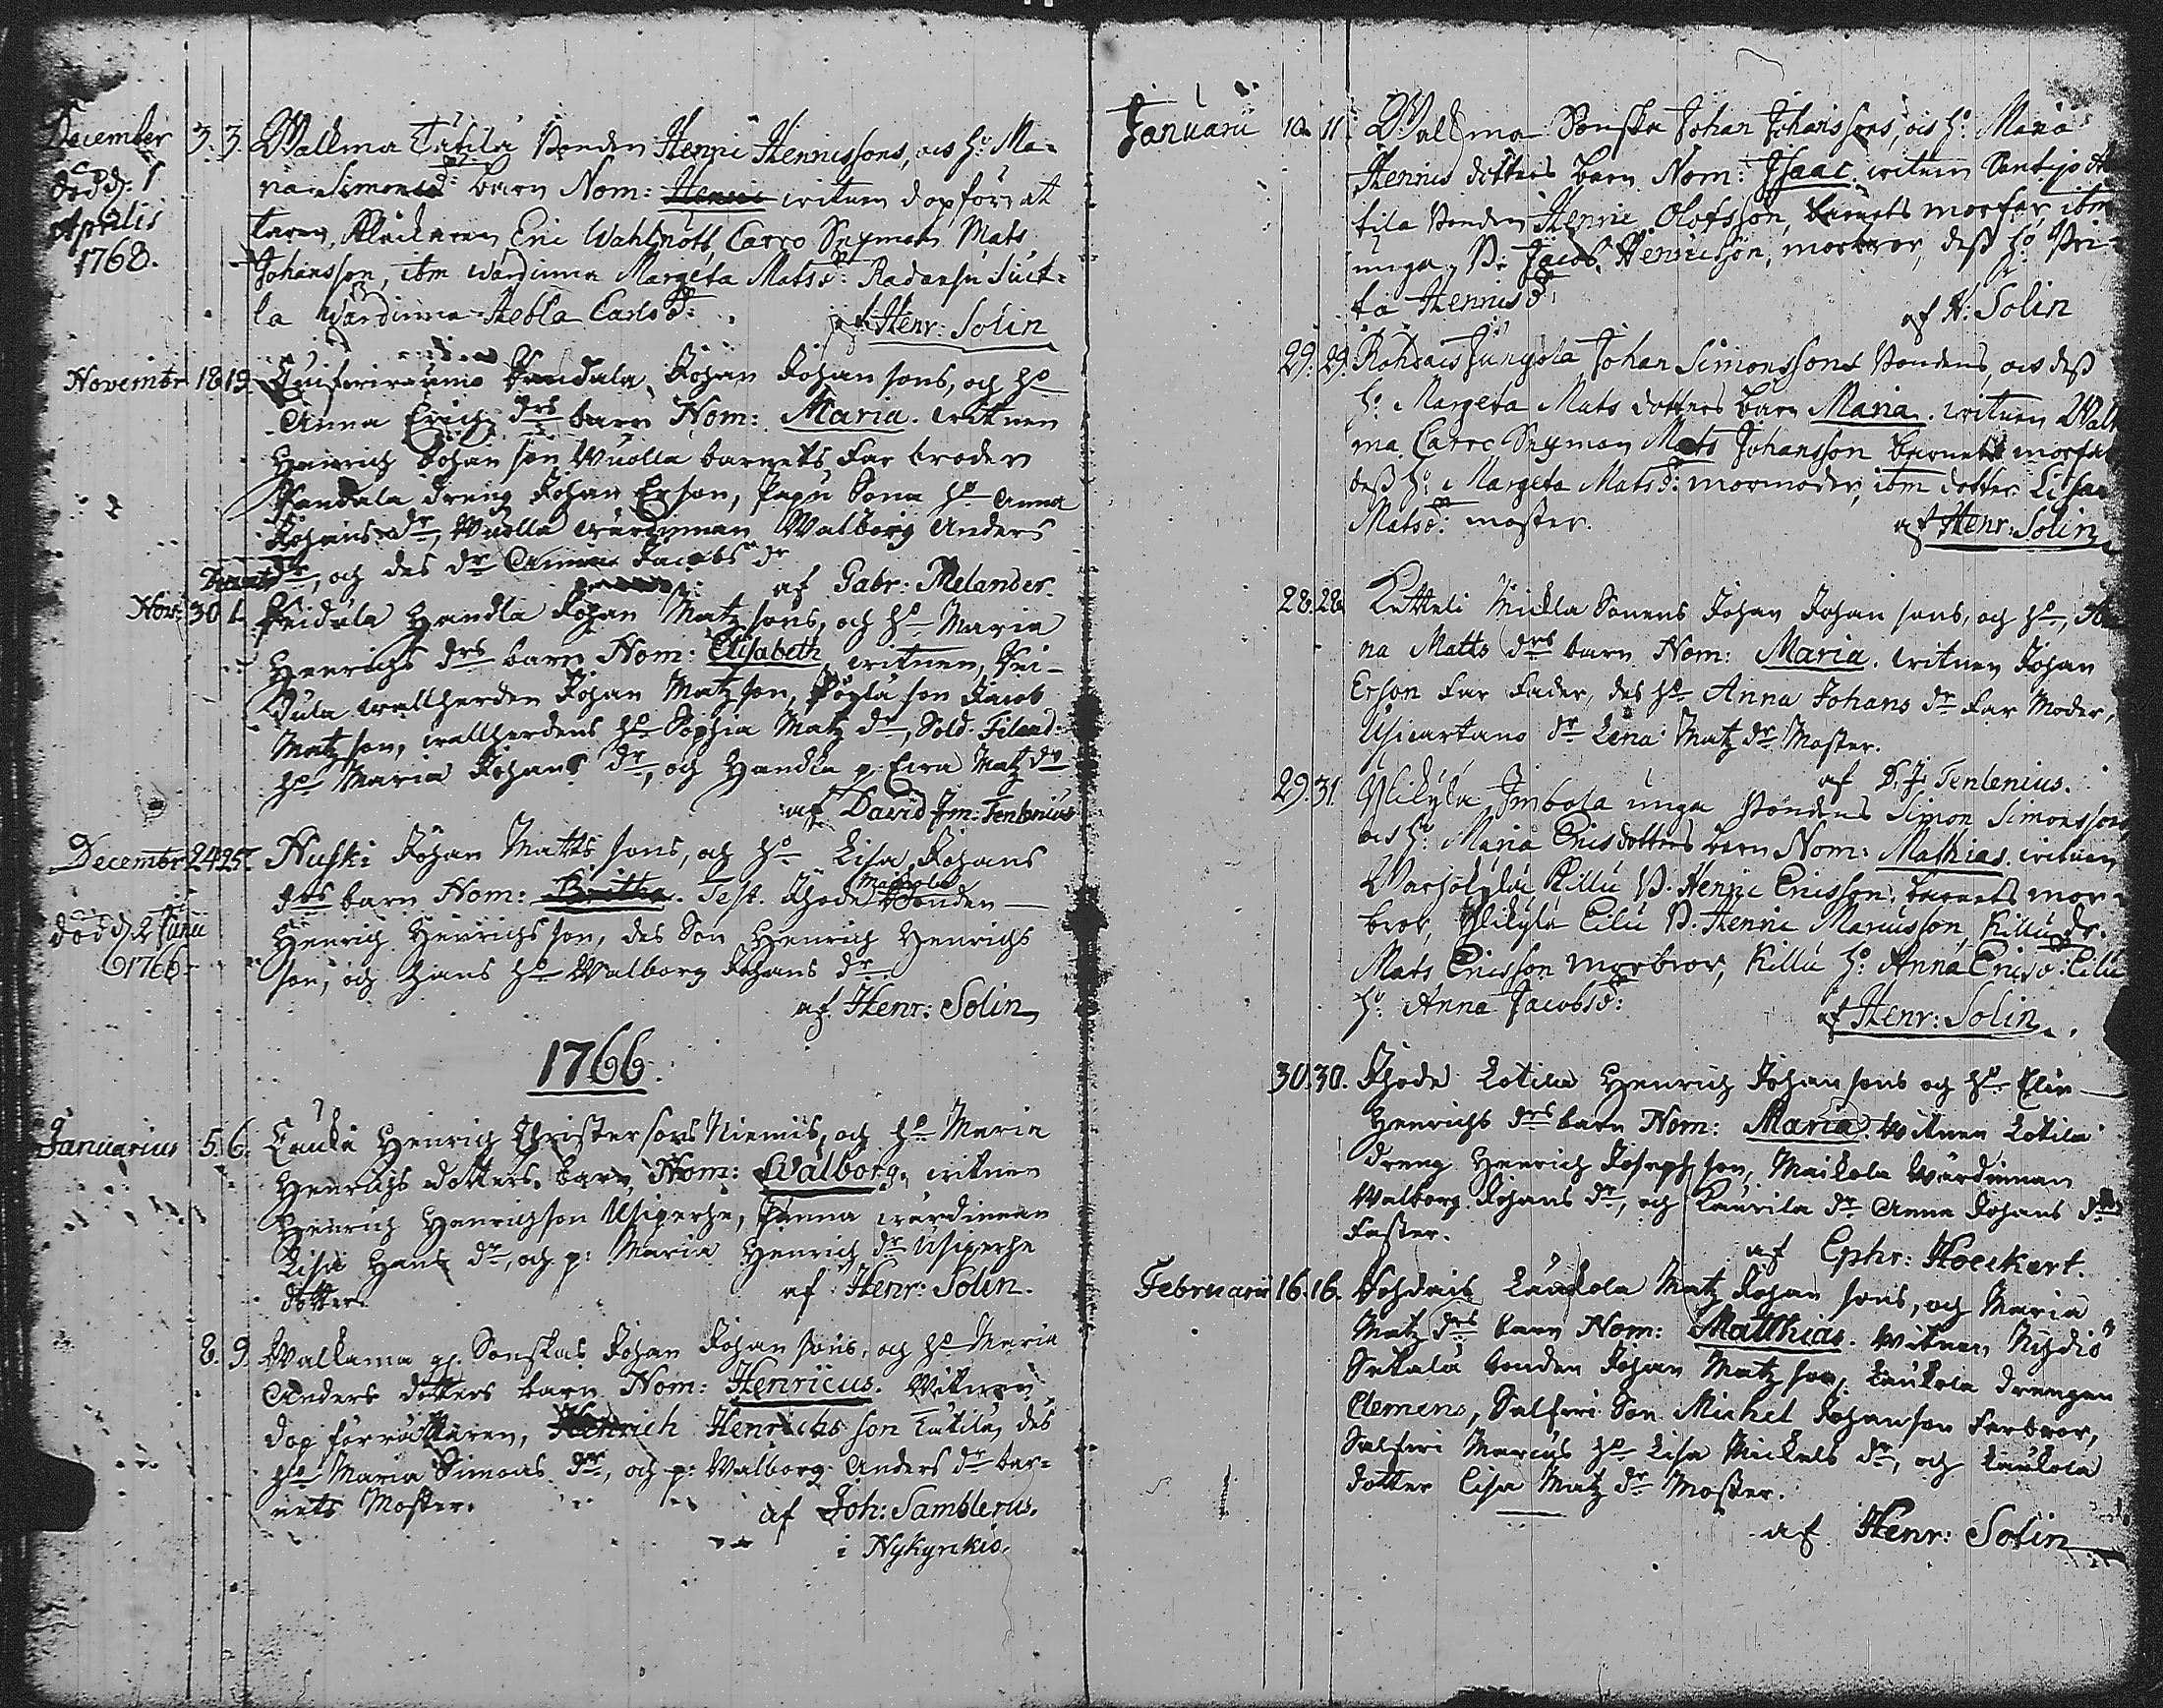 December 3. 3. Wallma Tätilä Bonden Henric Henricssons, ocs ho: Ma=
död d. 1 ria Simonsdr: barn Nom: Henric witnen dopförät
Aprilis taren, Klåckaren Eric Wahlrott, Carro Seyman Mats
1768. Johansson, itm wärdinna Margeta Matsdr:
la Wärdinna Hebla Carlsdr:
af Henr: Solin
Novembr 18 19. Pandala, Johan Johan sons, och ho
Anna Erichs drs barn Nom: Maria. witnen
Henrich Johan son Wuolla barnets Far broder
Pandala dreng Johan Erson, Papu Sona ho Anna
Johans dr, Wuolla wärdinnan Walborg Anders
dr, och des dr Anna Jacobs dr
af Gabr: Melander.
Nov: 30 1. Peidula Handla Johan Matz sons, och ho Maria
Henrichs drs barn Nom: Elisabeth, witnen, Pei-
dula wallherden Johan Matz son, son Jacob
Matz son, wallherdens ho Sophia Matz dr, Sold. Feland:
ho Maria Johans dr, och Handla p. Matz dr
af David Im: Tenlenius
Decembr 24 25. Huski Johan Matts sons, och ho Lisa Johans
drs barn Nom: Britha. Test. Rhode Maikola Bonden
död d. 2 Junii Henrich Henrichs son, des Son Henrich Henrichs
1766. son, och hans ho Walborg Johans dr
af Henr: Solin
1766.
Januarius 5. 6. Henrich Christersons Niemis, och ho Maria
Henrichs dotters barn Nom: Walborg, witnen
Henrich Henrichson Usiperhe, wärdinnan
Lisa Hans dr, och p: Maria Henrich dr Usiperhe
dotter.
af Henr: Solin.
8. 9. Wallama Sonskas Johan Johan sons, och ho Maria
Anders dotters barn Nom: Henricus. Witnen
dop förrättaren, Henrich Henrichs son Tätilä, des
ho Maria Simons dr, och p: Walborg Anders dr bar=
nets Moster.
af Joh: Samblerus.
i Nykyrkio.
Januarii 10. 11. Wallma Sonska Johan Johanssons, ocs ho: Maria
Henrics dotters barn Nom: Isaac. witnen
tila Bonden Henric Olofsson, barnets morfar, itm
unga B. Jacob Henricsson, morbror, dess ho: Bri-
ta Henricsdr:
af H: Solin
29. 29. Johan Simonssons Bondens, ocs dess
ho: Margeta Mats dotters barn Maria. witnen Wall
ma Carro Seyman Mats Johansson barnets morfar
dess ho: Margeta Matsdr: mormoder, itm dotter Lisa
Matsdr: moster.
af Henr: Solin
28. 28. Ketteli Mickla Sonens Johan Johan sons, och ho,
na Matts drs barn Nom: Maria. witnen Johan
Erson Far Fader, des ho Anna Johans dr Far Moder,
Usicartano dr Lena Matz dr Moster.
af D. J. Tenlenius.
29. 31. Ylikylä Imbola unga Bondens Simon Simonsson
ocs ho: Maria Erics dotters barn Nom: Mathias. witnen
Killu B. Henric Ericsson barnets mor=
bror, Ylikylä Eilu B. Henric Marcusson, Killu dr.
Mats Ericsson morbror, Killu ho: Anna Ericsdr: Eilu
ho: Anna Jacobsdr:
af Henr: Solin.
30. 30. Rhode Lotila Henrich Johan sons och ho Elin
Henrichs drs barn Nom: Maria. Witnen Lotila
dreng Henrich Joseph son, Maikola Wärdinnan
Walborg Johans dr, och Laurila dr Anna Johans dr
Faster.
af Ephr: Hoeckert.
Februarii 16. 16. Laukola Matz Johan sons, och Maria
Matz drs barn Nom: Matthias. Witnen
bonden Johan Matz son, Laukola drengen
Clemens, Salferi Son Michel Johanson Farbror,
Salferi Marcus ho Lisa Mickels dr, och Laukola
dotter Lisa Matz dr Moster.
af Henr: Solin